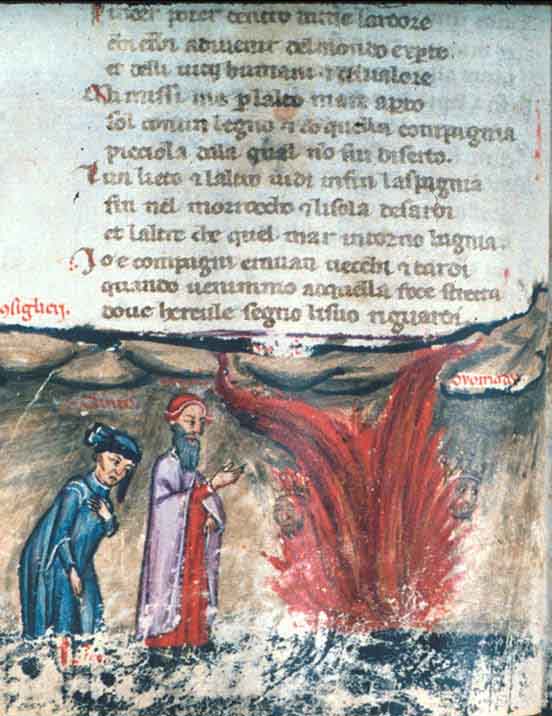 poter dentro lardore
adiuenir delmondo expto
et delli uitij humani & deualore
Ma missi me p lalto mare apto
sol conun legno & co quella compagnia
picciola dalla qual no fui diserto.
Lun lieto & laltro uidi infin laspagnia
fin nel morroccho & lisola desardi
et laltre che quel mar intorno bagnia.
Jo e compagni erauam uecchi & tardi
quando uenimmo acquella foce stretta
doue hercule segno lisuo riguardi.